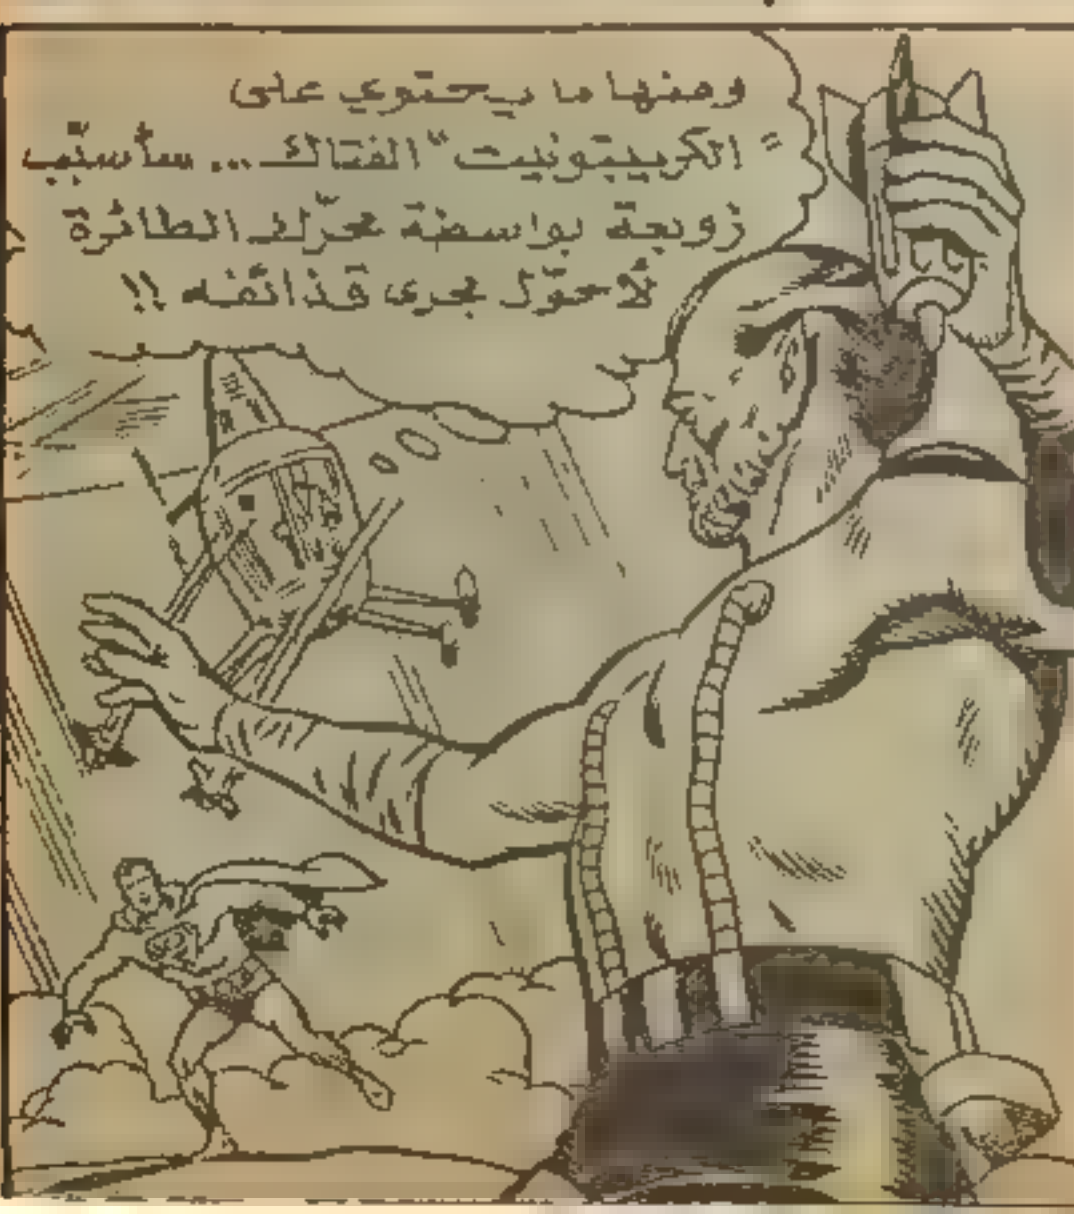 ومنها ما يحتوي على
"الكريبتونيت" الفتاك... سأسبّب
زوبعة بواسطة محرّك الطائرة
لأحوّل مجرى قذائفه !!